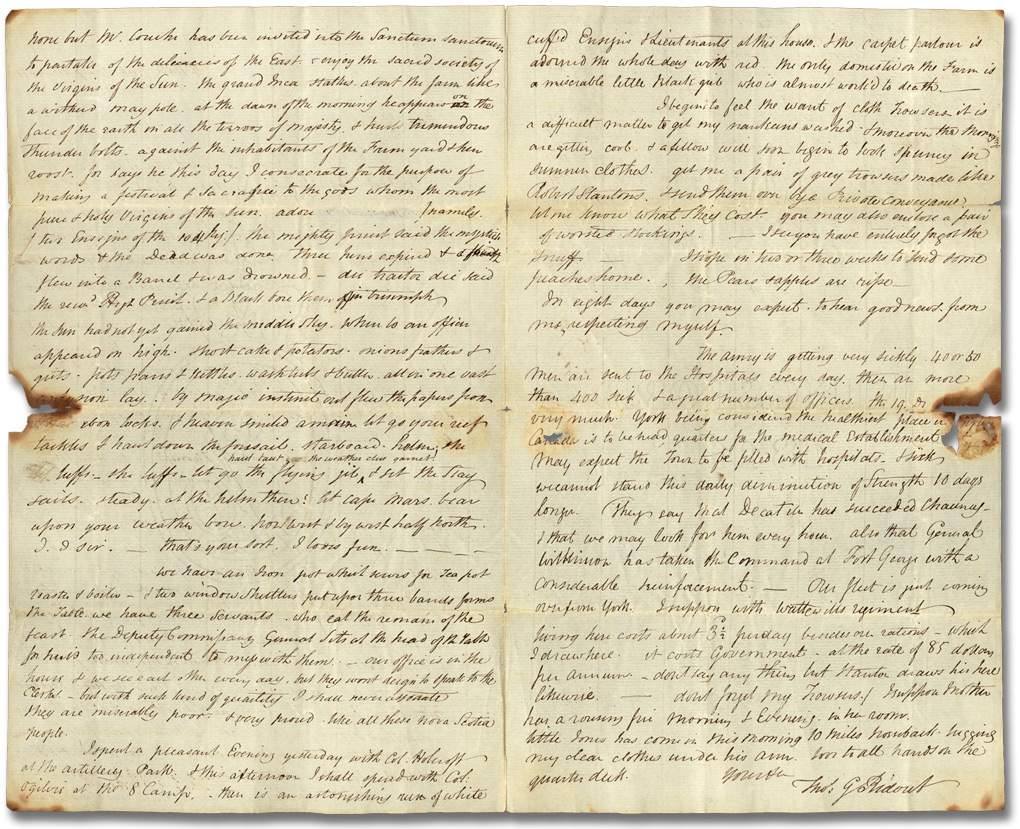 none but Mr. Couche has been invited into the Sanctum sanctorum
to partake of the delicacies of the East & enjoy the sacred society of
the Virgins of the Sun. The grand Inca stalks about the farm like
a withered may pole. at the dawn of the morning he appears on the
face of the earth in all the terrors of majesty, & hurls tremendous
thunder bolts against the inhabitants of the Farm yard & hen
roost. for says he this day I consecrate for the purpose of
making a festival & sacrafice to the gods whom the most
pure & holy Virgins of the Sun. adore (namely
(two Ensigns of the 104 Reg.) The mighty priest said the mystick
words & the Dead was done. three hens expired & a
flew into a Barrel & was drowned – die traitor die said
the rev.d High Priest. & a black bore them off in triumph
the Sun had not yet gained the middle sky. When lo an officer
appeared on high. Short cake & potatoes. onions feathers &
guts. pots pans & kettles. wash tubs & butter. all in one vast
common lay. by magic instinct out flew the papers from
ebon locks. & heaven smiled let go your reef
tackles & hawl down the foresail. starboard helm, the
haul taut the weather clue garnet,
luffs – she luffs – let go the flying jib, & set the stay
sails. steady. at the helm then! let cape Mars. bear
upon your weather bow. Nor West & by west half North.
I. I sir. — that's your sort. I love fun. — — — —
We have an Iron pot which serves for Tea pot
roaster & boiler – & two window shutters put upon three barrels forms
the Table we have three Servants. who eat the remains of the
feast. The Deputy Commissary General sits at the head of the table
for he is too independent to mess with them. — our office is in the
house & we see each other every day. but they won't deign to speak to the
Clerks – but with such kind of quantity I shall never
They are miserably poor. & very proud. like all these Nova Scotia
people.
I spent a pleasant Evening yesterday with Col. Holcroft
at the artillery Park. & this afternoon I shall spend with Col:
Ogilvie at the 8 Camp. – there is an astonishing run of white
cuffed Ensigns & Lieutenants at this house. & the carpet parlour is
adorned the whole day with red. the only domestic on the Farm is
a miserable little black girl who is almost work'd to death —
I begin to feel the want of cloth Trowsers it is
a difficult matter to get my nankeens washed & moreover the Morngs
are getting cool. & a fellow will soon begin to look spuney in
summer clothes. get me a pair of grey trowsers made like
Robert Stantons. & send them over by a Private conveyance
let me know what they cost you may also enclose a pair
of worsted stockings. — I see you have entirely forgot the
Snuff. — I hope in two or three weeks to send some
peaches home. , the Pears & apples are ripe
In eight days you may expect to hear good news. from
me, respecting myself.
The army is getting very sickly. 40 or 50
men are sent to the Hospitals every day. there are more
than 400 sick & a great number of officers. the 19. Dr
very much. York being considered the healthiest place in
Canada is to be head quarters for the medical Establishment
may expect the Town to be filled with hospitals.
we cannot stand this daily diminution of Strength 10 days
longer. They say that Decatur has succeeded Chauncy –
& that we may look for him every hour. also that General
Wilkinson has taken the Command at Fort George with a
considerable reinforcement. — Our fleet is just coming
over from York. I suppose with
living here costs about 3 per day besides our rations – which
I draw here. it costs Government – at the rate of 85 dollars
per annum – don't say any thing but Stanton draws his here
likewise. — dont forget my Trowsers! I suppose Mother
has a rousing fire Morning & Evening. in her room.
little Jones has come in this morning 10 miles horseback lugging
my clean clothes under his arm. love to all hands on the
quarter deck. Yours &c
Thos. G Ridout